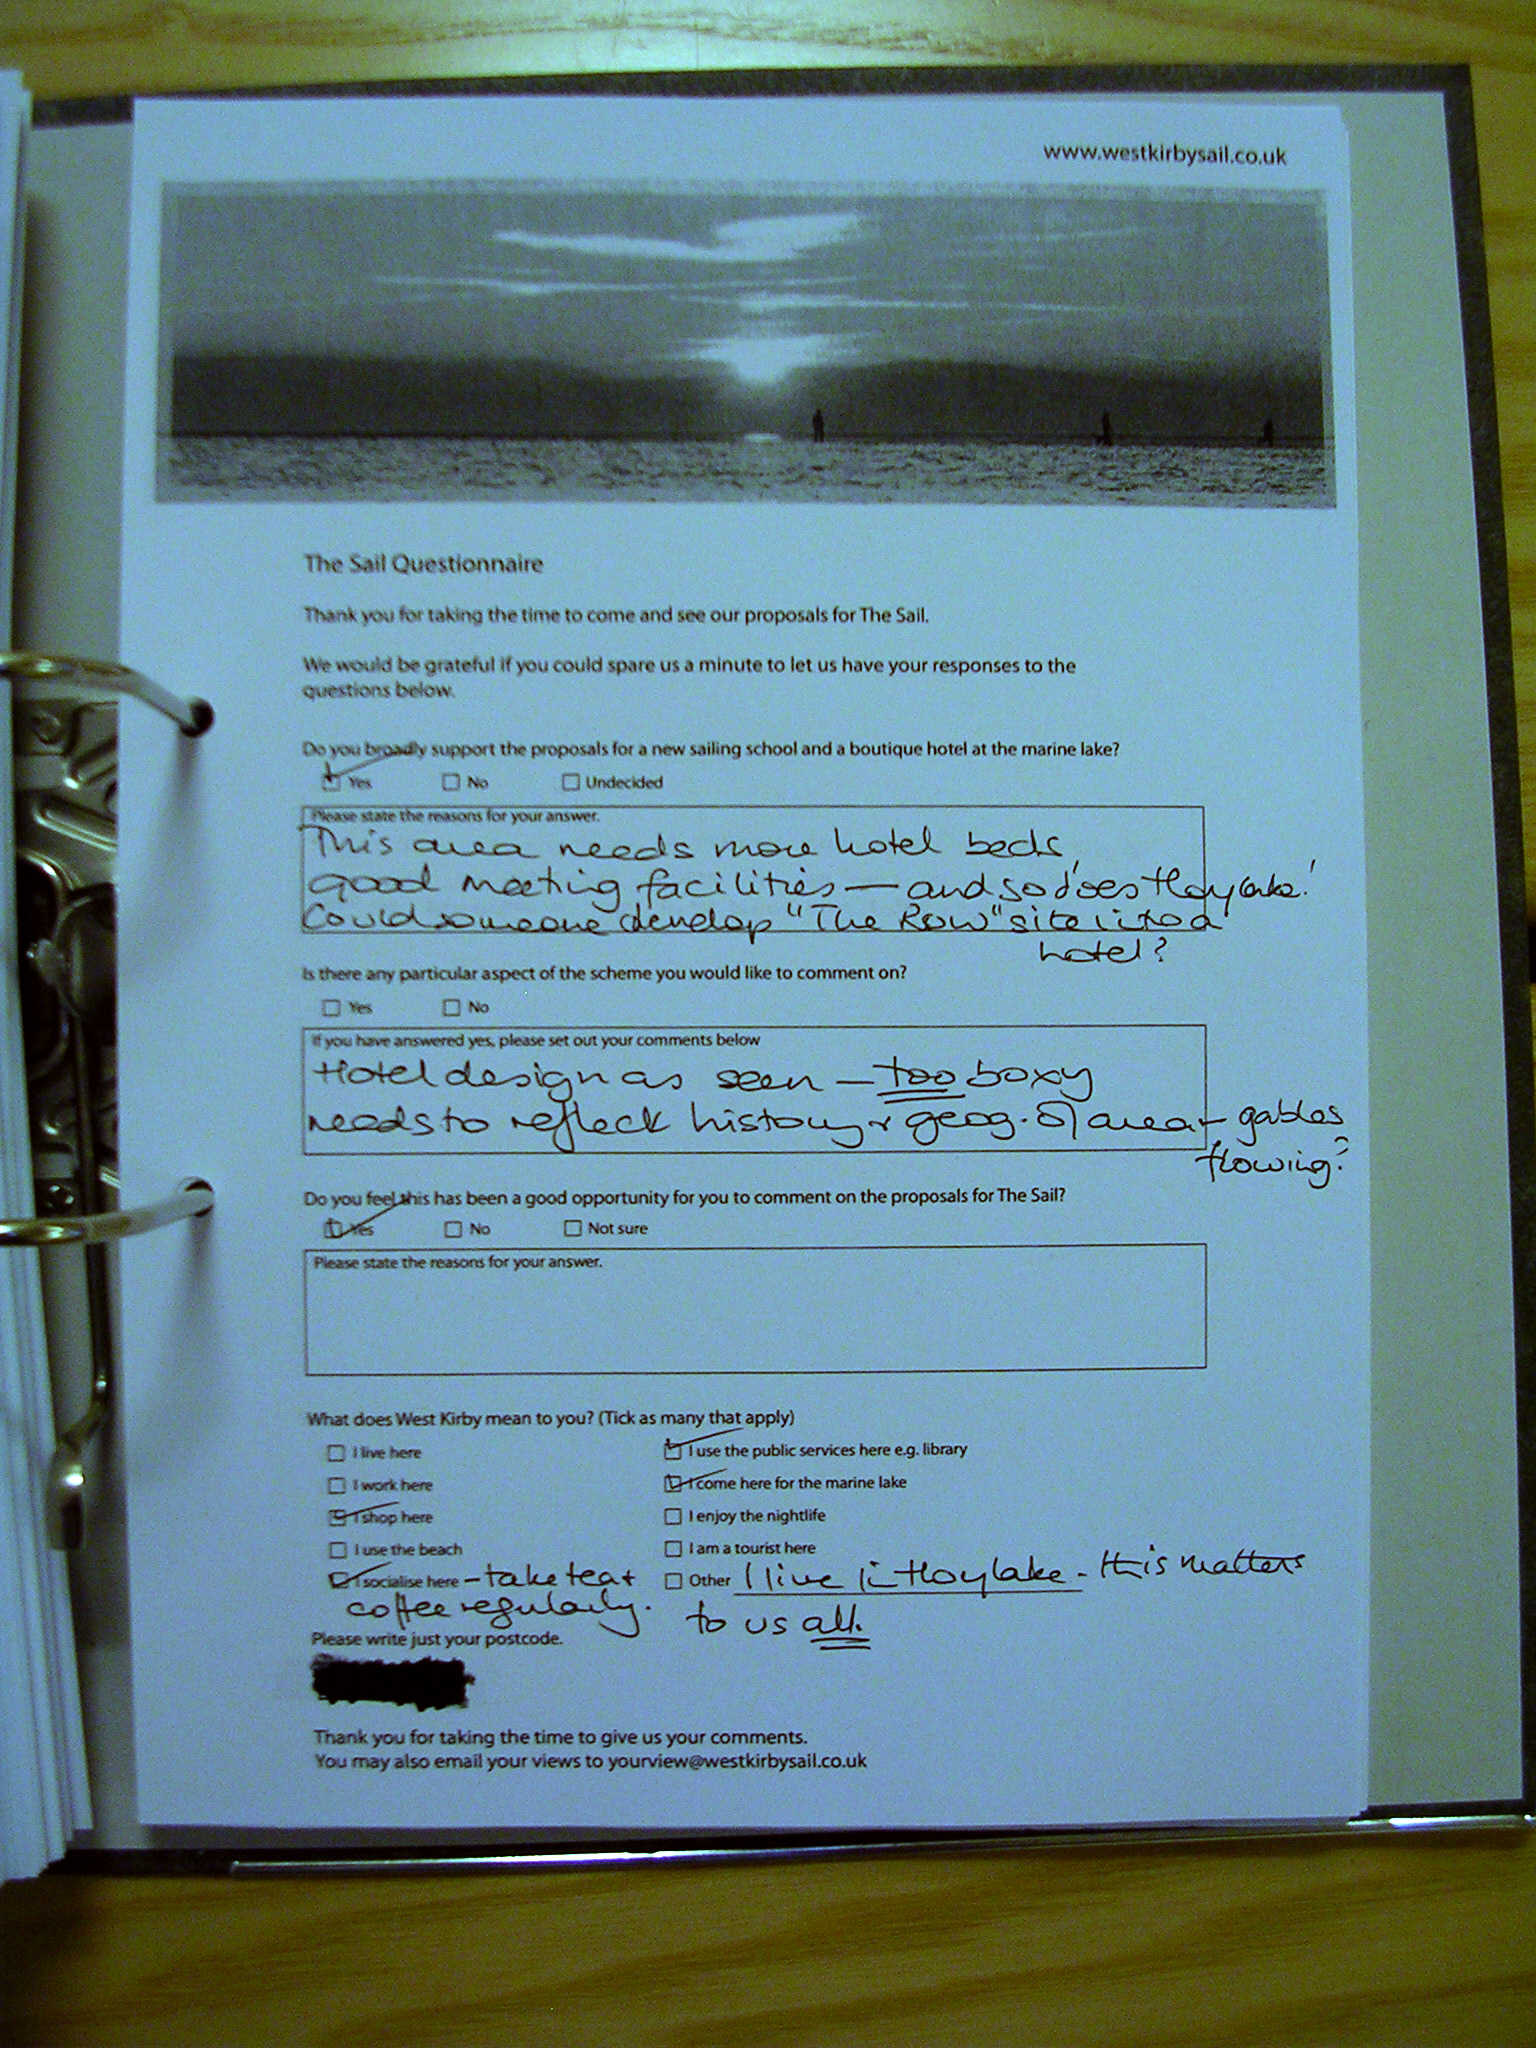 www.westkirbysail.co.uk
The Sail Questionnaire
Thank you for taking the time to come and see our proposals for The Sail.
We would be grateful if you could spare us a minute to let us have your responses to the
questions below.
Do you broadly support the proposals for a new sailing school and a boutique hotel at the marine lake?
Yes No Undecided
Please state the reasons for your answer.
This area needs more hotel beds,
good meeting facilities — and so does Hoylake!
Could someone develop "The Row" site into a
hotel?
Is there any particular aspect of the scheme you would like to comment on?
Yes No
If you have answered yes, please set out your comments below
Hotel design as seen — too boxy
needs to reflect history & geog. of area - gables
flowing?
Do you feel this has been a good opportunity for you to comment on the proposals for The Sail?
Yes No Not sure
Please state the reasons for your answer.
What does West Kirby mean to you? (Tick as many that apply)
I live here I use the public services here e.g. library
I work here I come here for the marine lake
I shop here I enjoy the nightlife
I use the beach I am a tourist here
I socialise here - take tea + Other I live in Hoylake - this matters
coffee regularly. to us all.
Please write just your postcode.
Thank you for taking the time to give us your comments.
You may also email your views to yourview@westkirbysail.co.uk